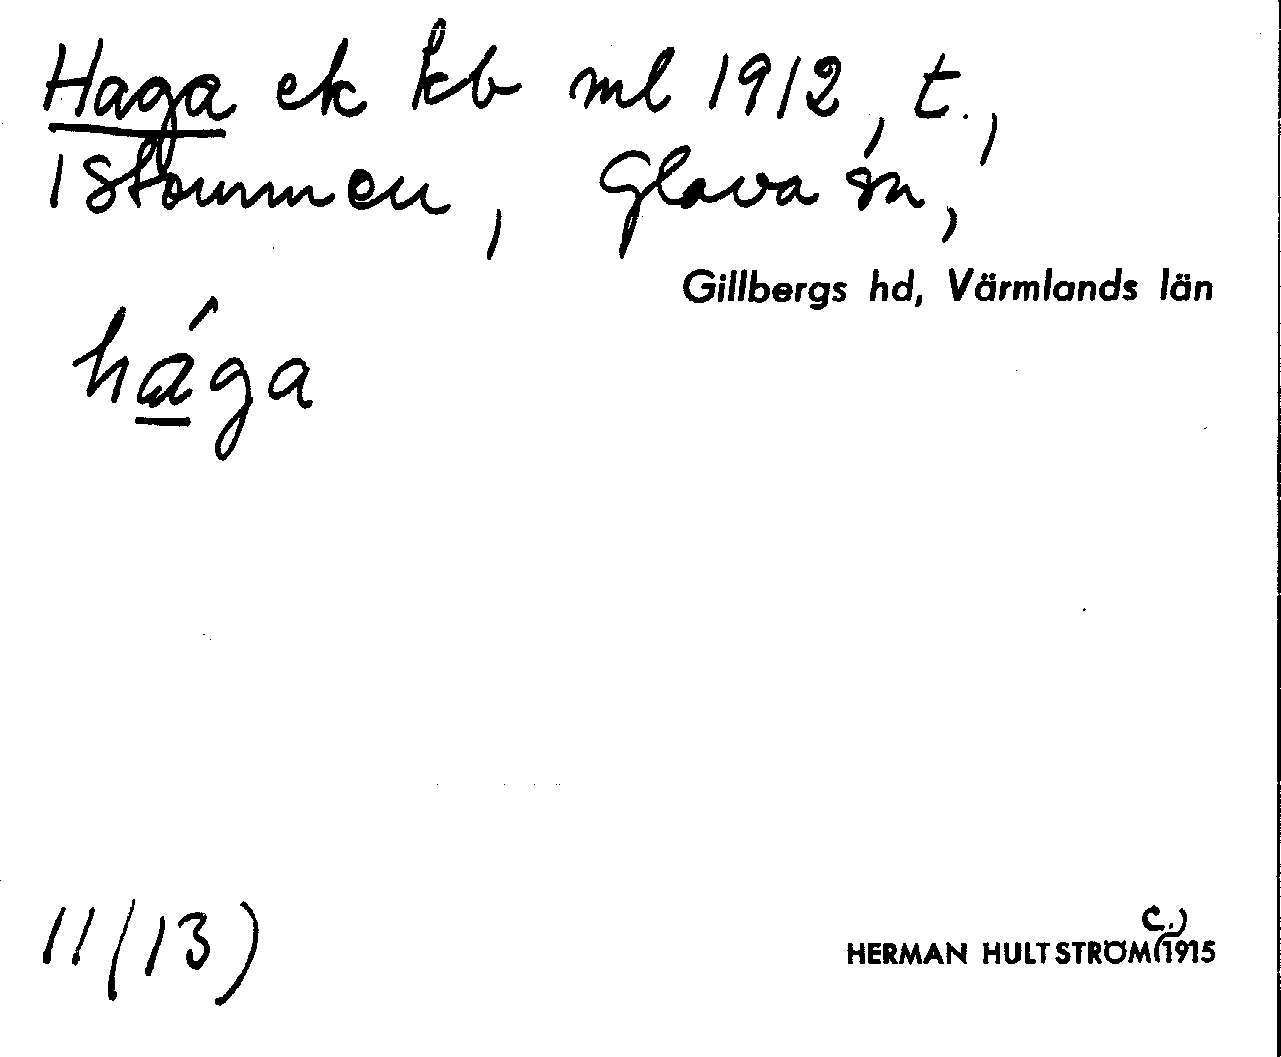 Haga ek kb ml 1912, t.,
1 Stommen, Glava sn,
Gillbergs hd, Värmlands län
hága
11(13)
HERMAN HULTSTRÖM (c.) 1915